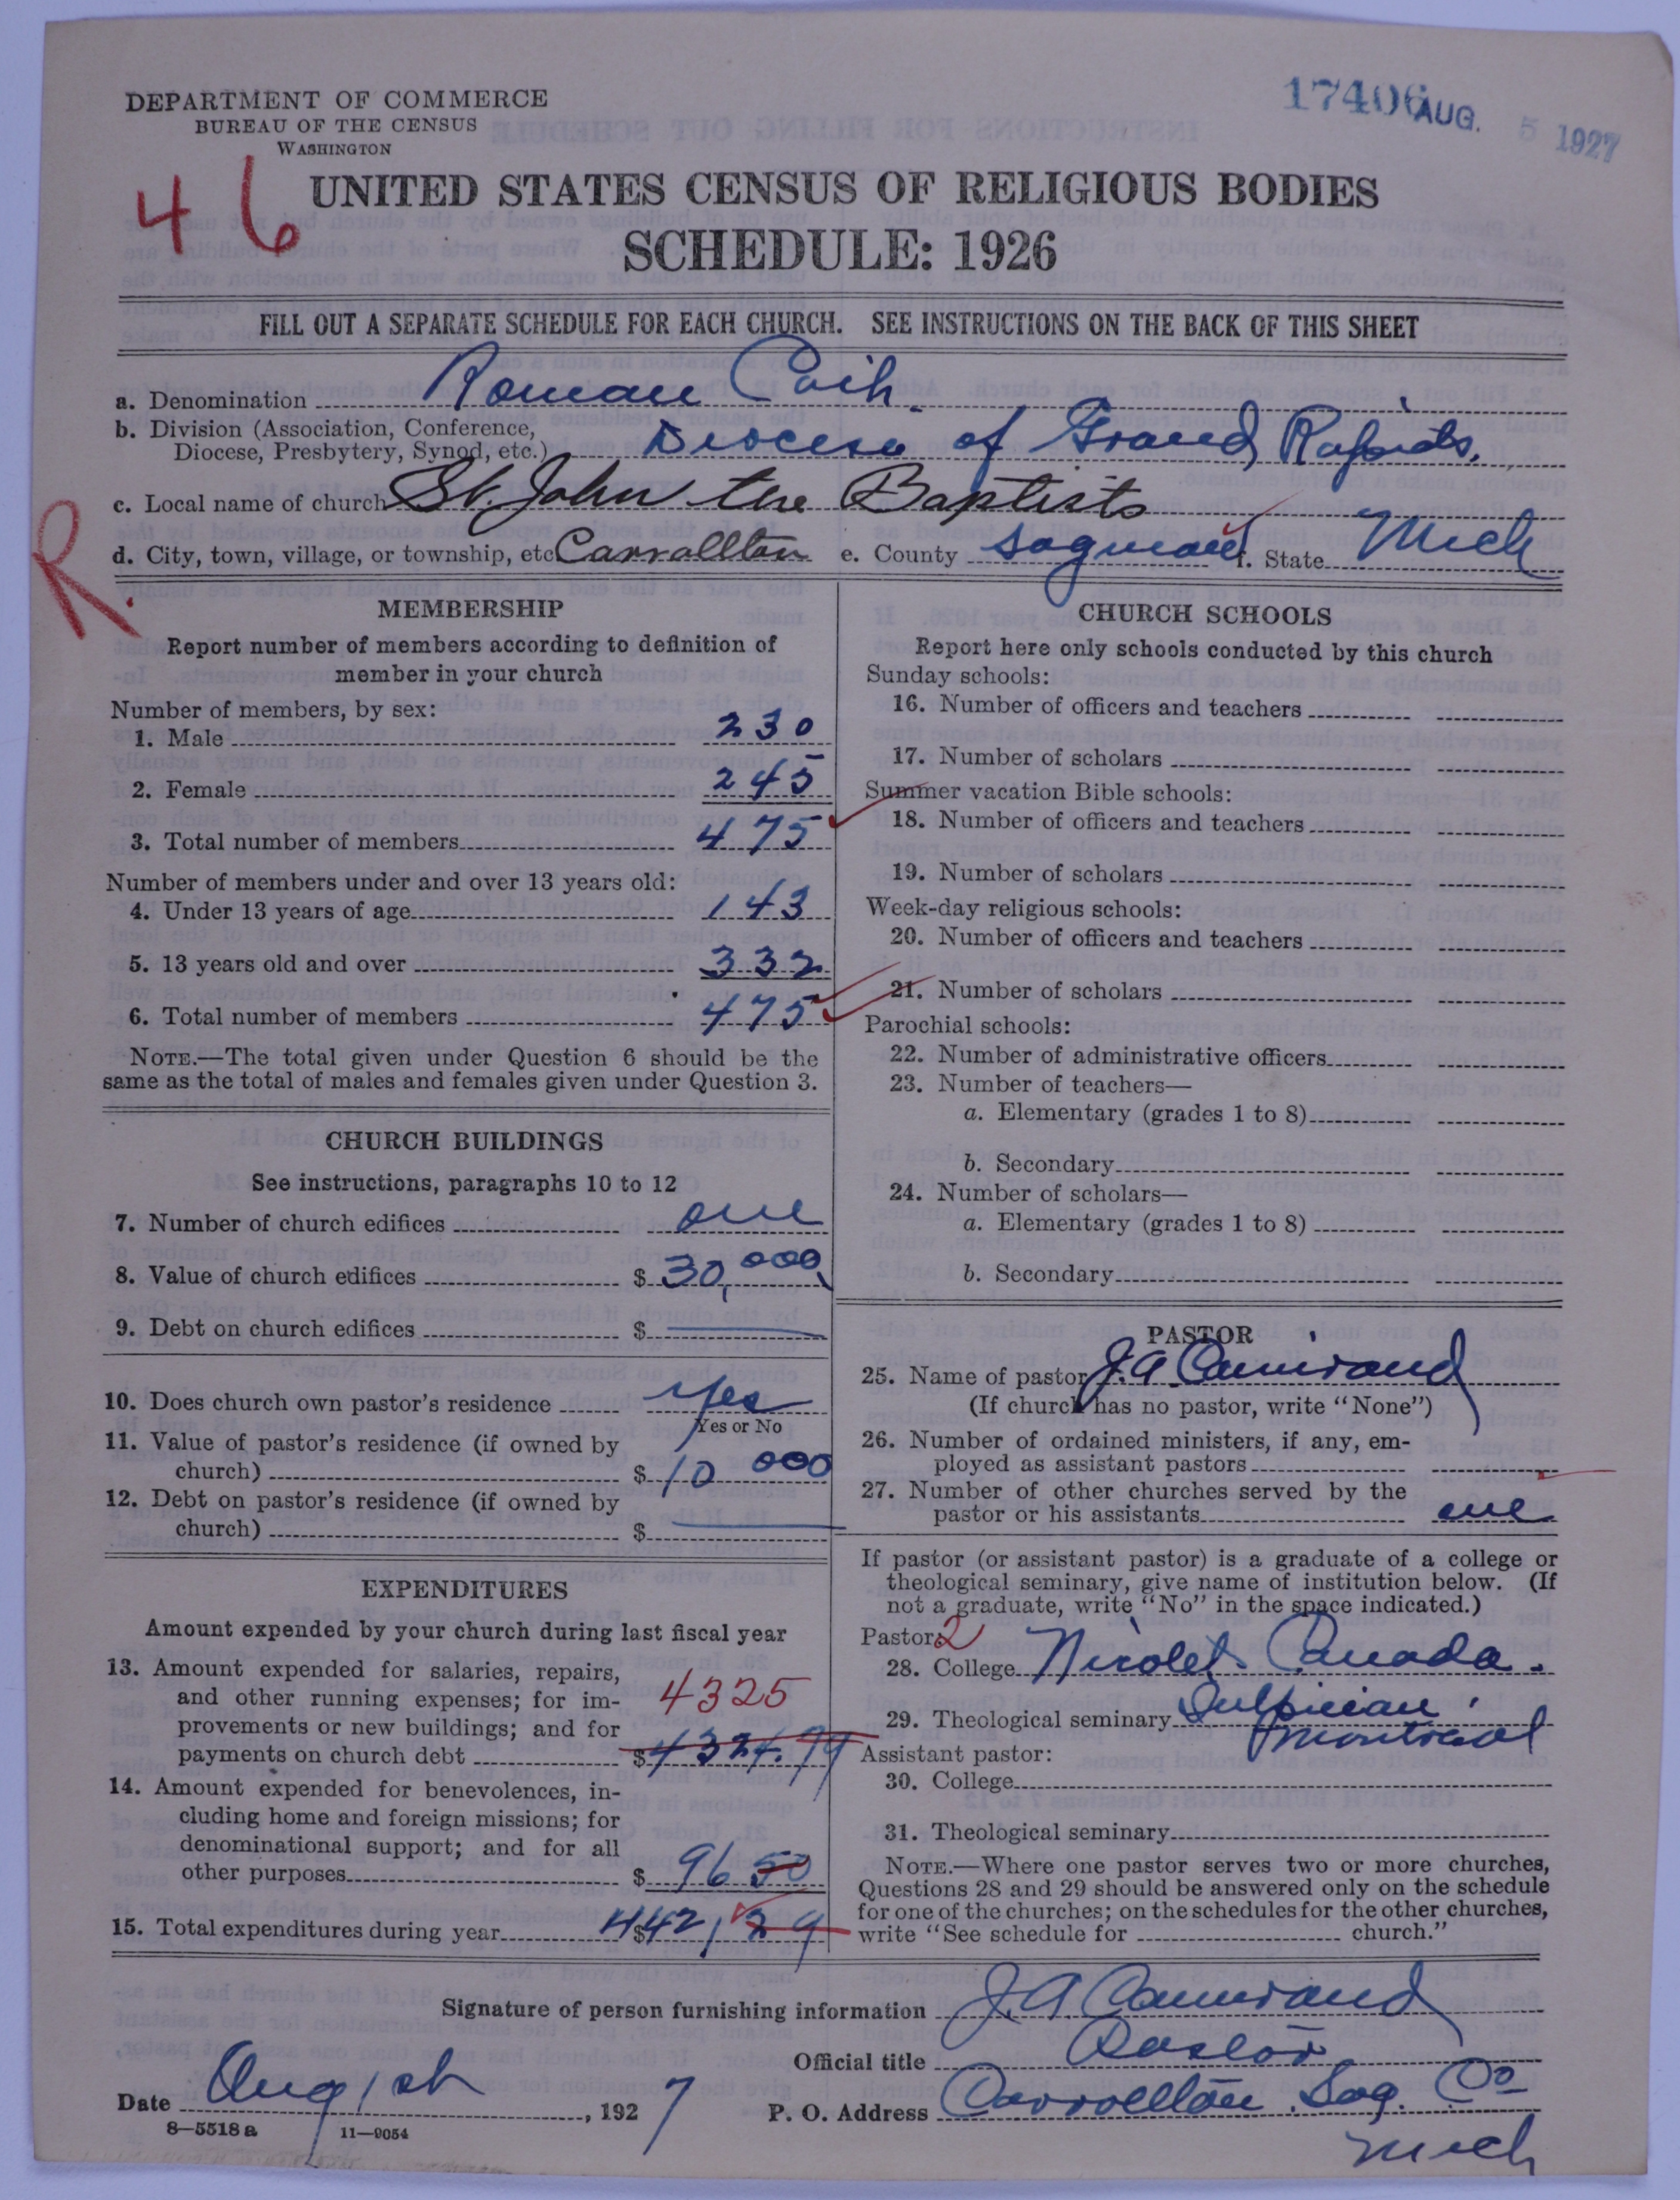 DEPARTMENT OF COMMERCE
BUREAU OF THE CENSUS
WASHINGTON
17406 AUG. 5 1927
46
UNITED STATES CENSUS OF RELIGIOUS BODIES
SCHEDULE: 1926
FILL OUT A SEPARATE SCHEDULE FOR EACH CHURCH. SEE INSTRUCTIONS ON THE BACK OF THIS SHEET
a. Denomination Roman Cath.
b. Division (Association, Conference,
Diocese, Presbytery, Synod, etc.) Diocese of Grand Rapids.
c. Local name of church St. John the Baptists
R.
d. City, town, village, or township, etc Carrollton e. County Saginaw f. State Mich
MEMBERSHIP
Report number of members according to definition of
member in your church
Number of members, by sex:
1. Male 230
2. Female 245
3. Total number of members 475
Number of members under and over 13 years old:
4. Under 13 years of age 143
5. 13 years old and over 332
6. Total number of members 475
NOTE.—The total given under Question 6 should be the
same as the total of males and females given under Question 3.
CHURCH BUILDINGS
See instructions, paragraphs 10 to 12
7. Number of church edifices one
8. Value of church edifices $ 30,000
9. Debt on church edifices $ —
10. Does church own pastor's residence Yes
Yes or No
11. Value of pastor's residence (if owned by
church) $ 10 000
12. Debt on pastor's residence (if owned by
church) $ —
EXPENDITURES
Amount expended by your church during last fiscal year
13. Amount expended for salaries, repairs,
and other running expenses; for im-
4325
provements or new buildings; and for
payments on church debt $ 4324.79
14. Amount expended for benevolences, in-
cluding home and foreign missions; for
denominational support; and for all
other purposes $ 96 50
15. Total expenditures during year $ 4421 29
CHURCH SCHOOLS
Report here only schools conducted by this church
Sunday schools:
16. Number of officers and teachers
17. Number of scholars
Summer vacation Bible schools:
18. Number of officers and teachers
19. Number of scholars
Week-day religious schools:
20. Number of officers and teachers
21. Number of scholars
Parochial schools:
22. Number of administrative officers
23. Number of teachers—
a. Elementary (grades 1 to 8)
b. Secondary
24. Number of scholars—
a. Elementary (grades 1 to 8)
b. Secondary
PASTOR
25. Name of pastor J.A. Camirand
(If church has no pastor, write "None")
26. Number of ordained ministers, if any, em-
ployed as assistant pastors
27. Number of other churches served by the
pastor or his assistants one
If pastor (or assistant pastor) is a graduate of a college or
theological seminary, give name of institution below. (If
not a graduate, write "No" in the space indicated.)
Pastor: 2
28. College Nicolet Canada.
29. Theological seminary Sulpician
Montreal
Assistant pastor:
30. College
31. Theological seminary
NOTE.—Where one pastor serves two or more churches,
Questions 28 and 29 should be answered only on the schedule
for one of the churches; on the schedules for the other churches,
write "See schedule for church."
Signature of person furnishing information J.A. Camirand
Official title Pastor
Date Aug 1st, 1927
P. O. Address Carrollton Sag. Co
Mich
8—5518 a 11—9054